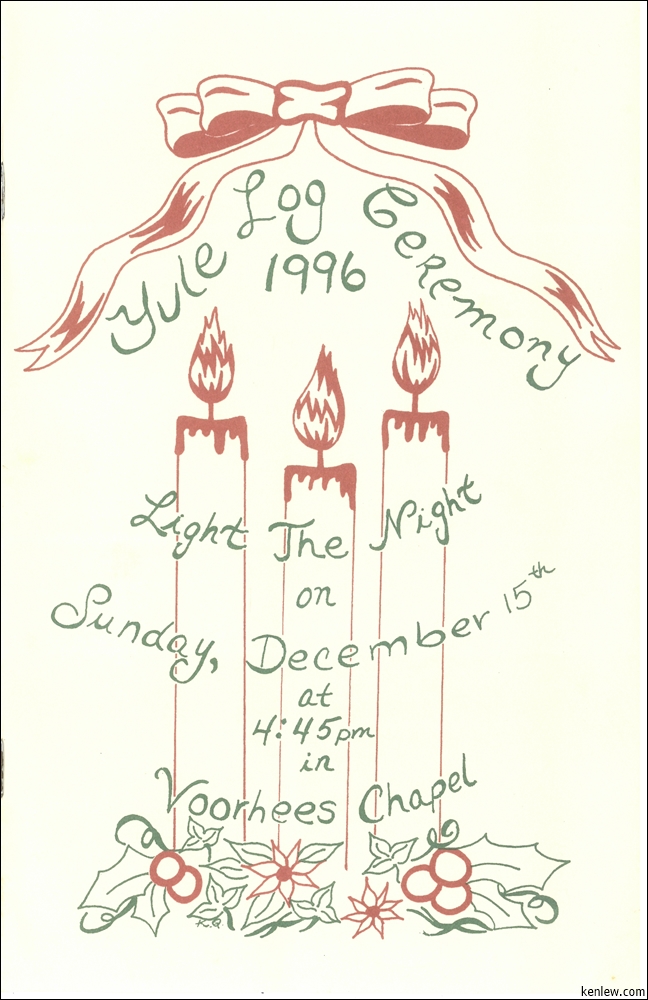 Yule Log Ceremony
1996
Light The Night
on
Sunday, December 15th
at
4:45pm
in
Voorhees Chapel
kenlew.com